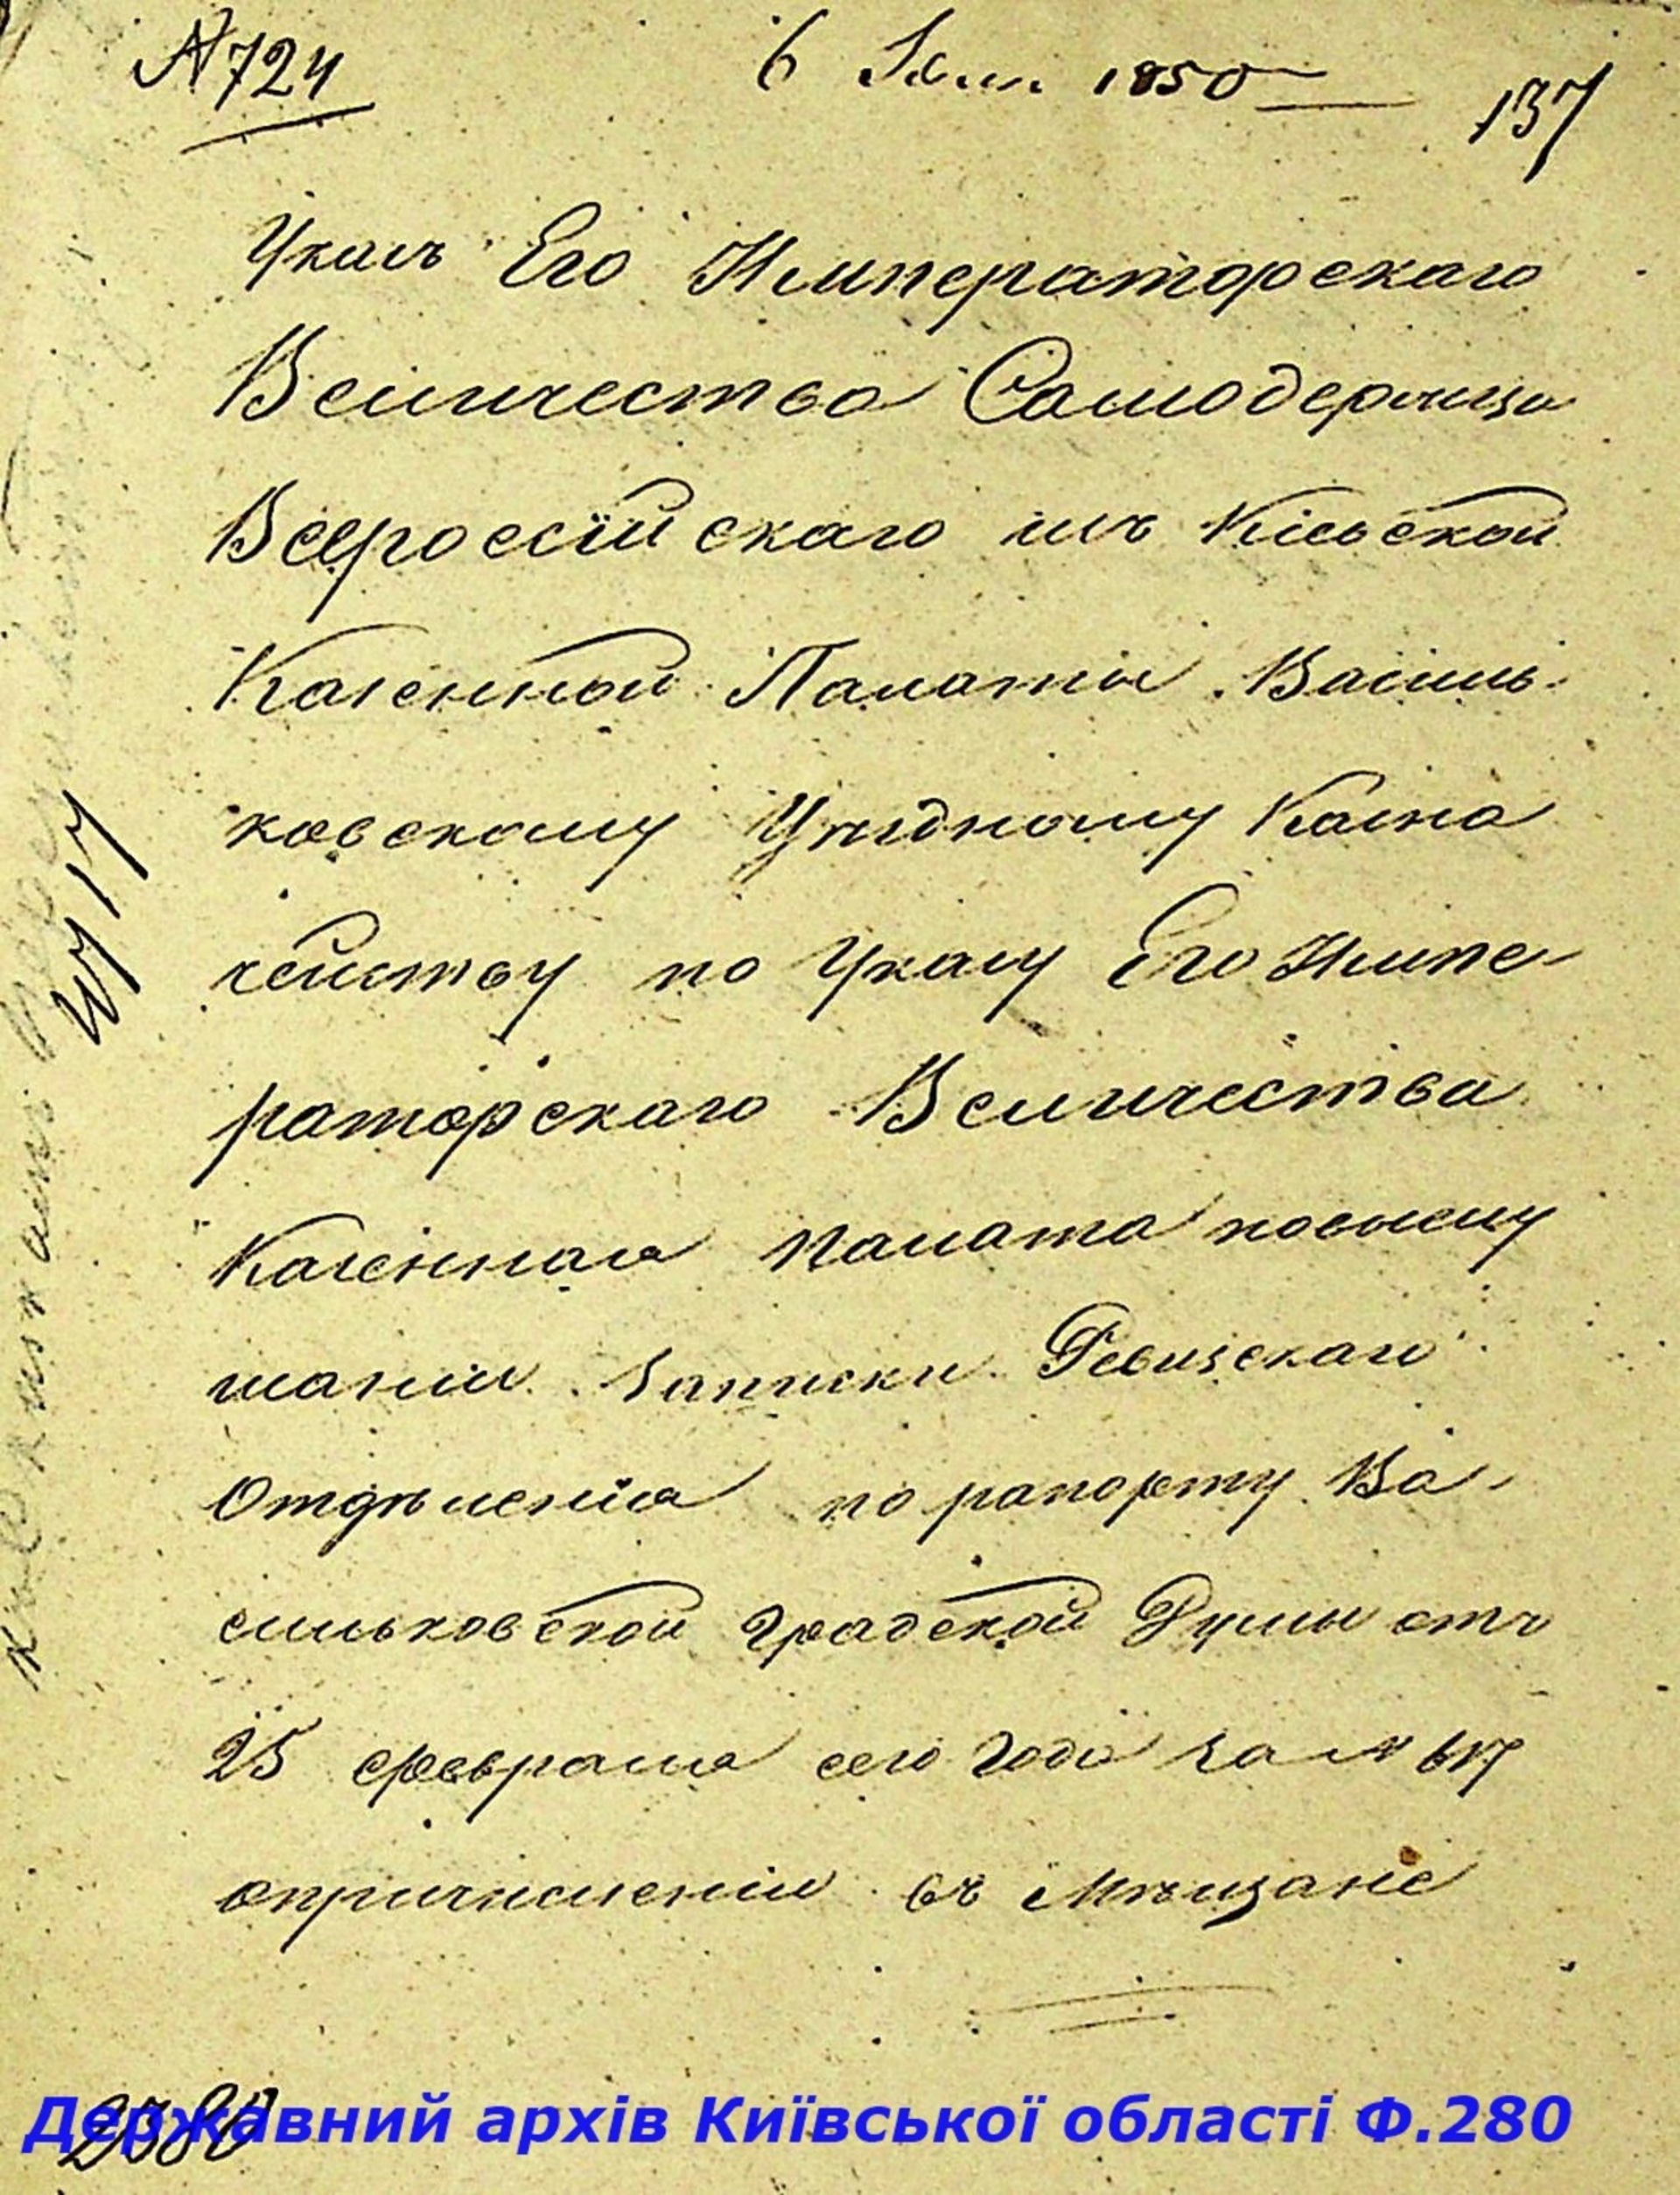 № 724
6 1850
137
Указъ Его Императорскаго
Величества Самодержца
Всероссійскаго изъ Кіевской
Казенной Палаты Василь-
ковскому Уѣздному Казна
чейству по Указу Его Импе-
раторскаго Величества
Казенная палата повыслу
шаніи Записки Ревизскаго
Отдѣленія по рапорту Ва-
сильковской Градской Думы отъ
25 февраля сего года за №
опричисленіи въ Мѣщане
2380
Державний архів Київської області Ф.280